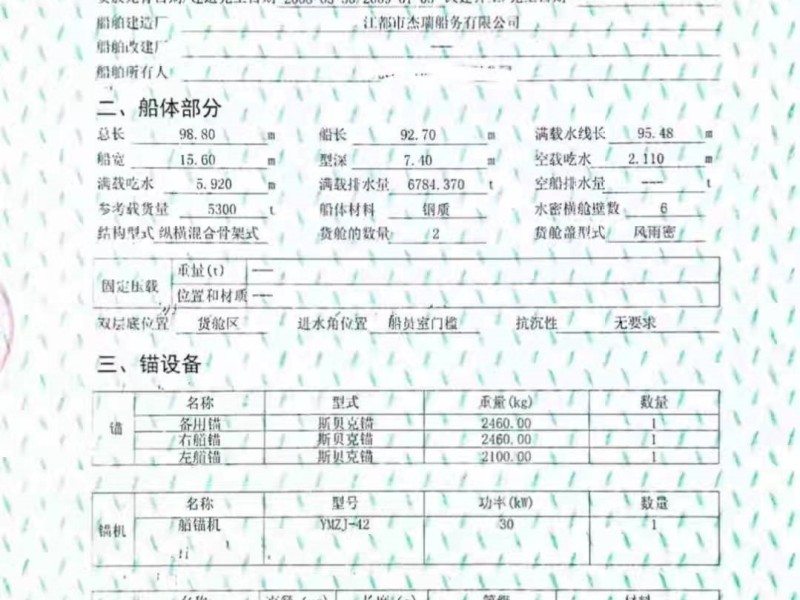 船舶建造厂 江都市杰瑞船务有限公司
船舶改建厂 ——
船舶所有人
二、船体部分
总长 98.80 m 船长 92.70 m 满载水线长 95.48 m
船宽 15.60 m 型深 7.40 m 空载吃水 2.110 m
满载吃水 5.920 m 满载排水量 6784.370 t 空船排水量 --- t
参考载货量 5300 t 船体材料 钢质 水密横舱壁数 6
结构型式 纵横混合骨架式 货舱的数量 2 货舱盖型式 风雨密
固定压载 重量(t) ——
位置和材质 ——
双层底位置 货舱区 进水角位置 船员室门槛 抗沉性 无要求
三、锚设备
锚 名称 型式 重量(kg) 数量
备用锚 斯贝克锚 2460.00 1
右船锚 斯贝克锚 2460.00 1
左船锚 斯贝克锚 2100.00 1
锚机 名称 型号 功率(kW) 数量
船锚机 YMZJ-42 30 1